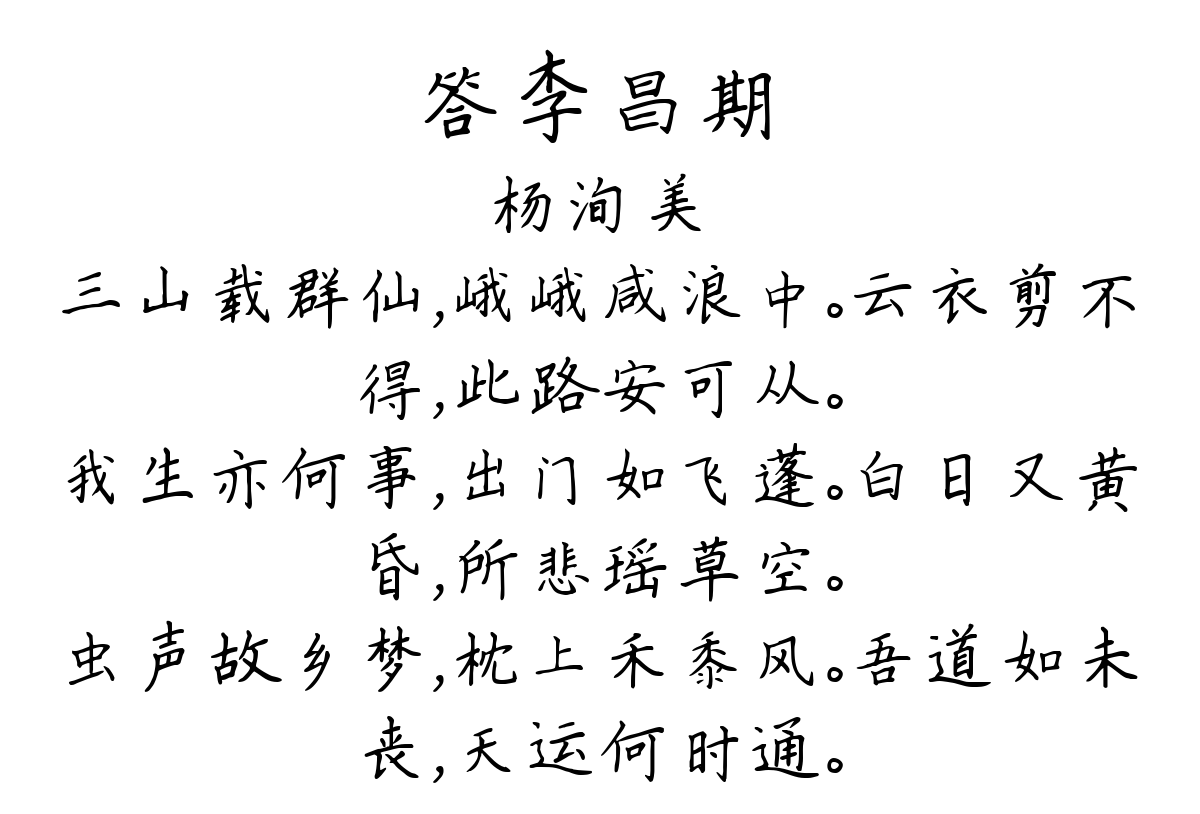 答李昌期
杨洵美
三山载群仙,峨峨咸浪中。云衣剪不
得,此路安可从。
我生亦何事,出门如飞蓬。白日又黄
昏,所悲瑶草空。
虫声故乡梦,枕上禾黍风。吾道如未
丧,天运何时通。